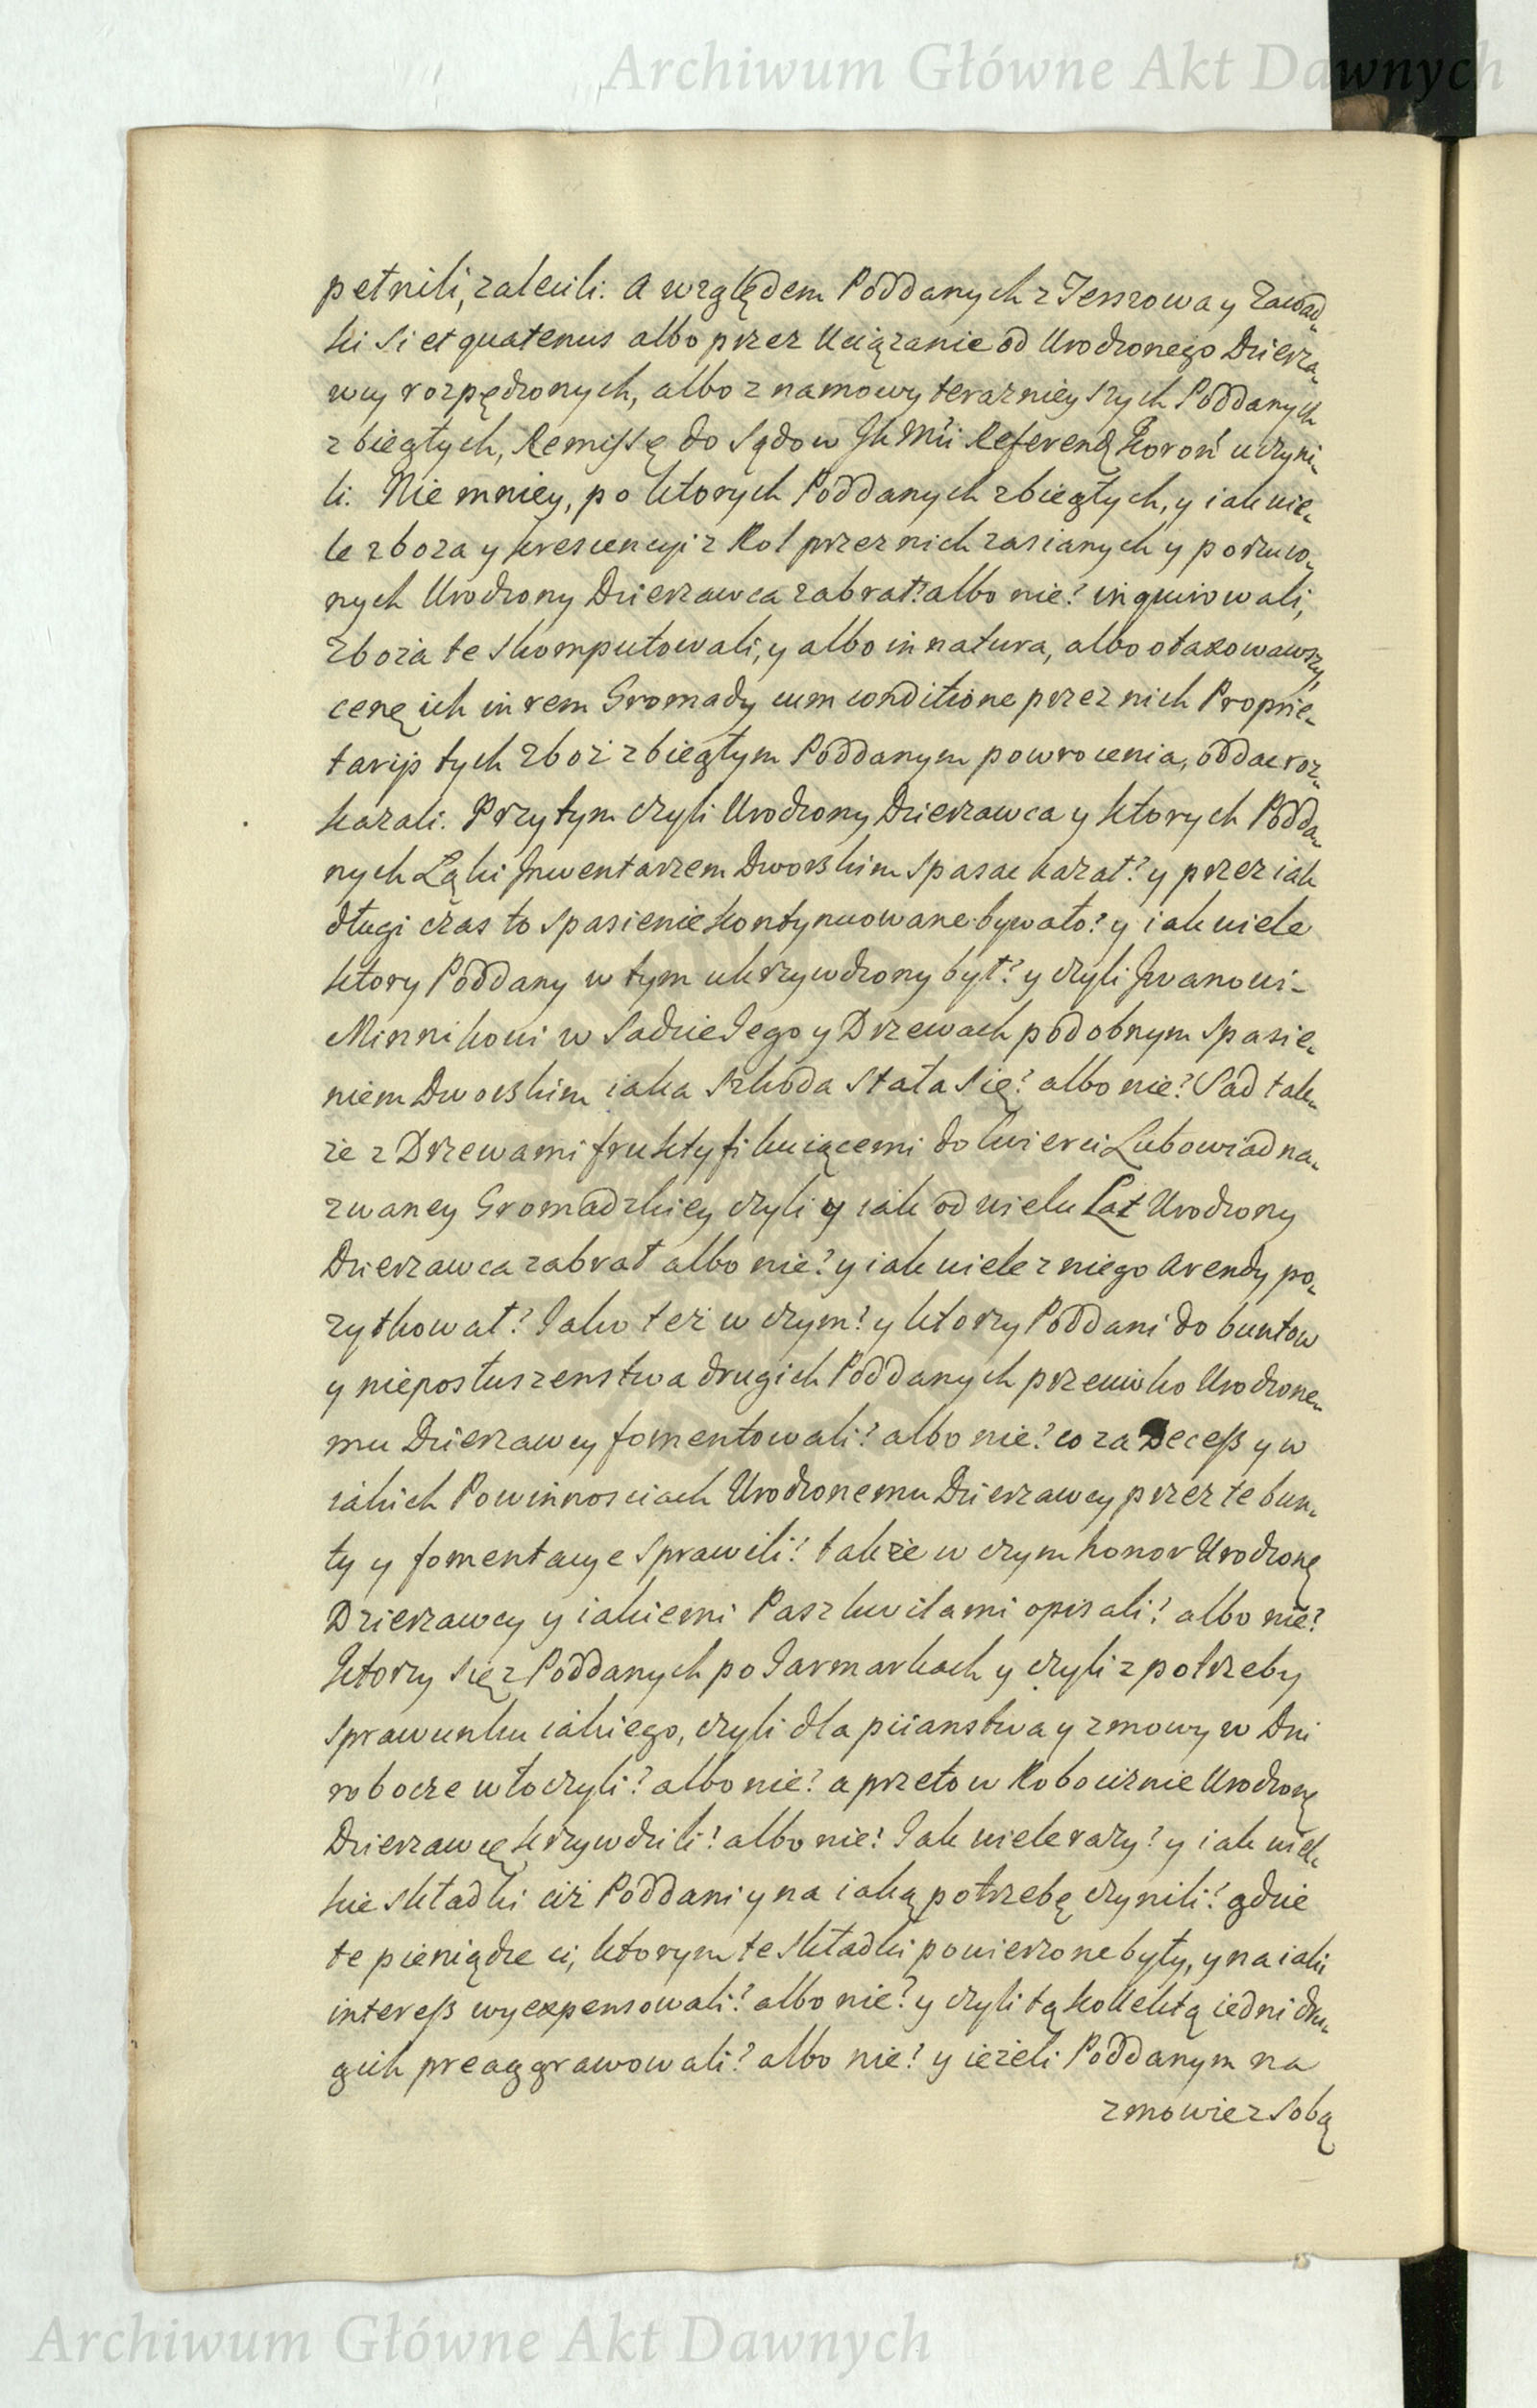 Archiwum Główne Akt Dawnych
pełnili, zalecili. A względem Poddanych z Jerszowa y Zawad-
ki si et quatenus albo przez Uciązanie od Urodzonego Dzierza-
wcy rozpędzonych, albo z namowy teraznieyszych Poddanych
zbiegłych, Remissę do Sądow JK Mći Referend Koroń uczyni-
li. Nie mniey, po ktorych Poddanych zbiegłych, y iak wie-
le zboza y krescencyi z Rol przez nich zasianych y porzuco-
nych Urodzony Dzierzawca zabrał? albo nie? inquirowali,
zboża te skomputowali, y albo in natura, albo otaxowawszy
cenę ich in rem Gromady cum conditione przez nich Proprie-
tarijs tych zboż zbiegłym Poddanym powrocenia, oddac roz-
kazali. Przy tym czyli Urodzony Dzierzawca y ktorych Podda-
nych Łąki Inwentarzem Dworskim spasac kazał? y przez iak
długi czas to spasienie kontynuowane bywało? y iak wiele
ktory Poddany w tym ukrzywdzony był? y czyli Iwanowi-
Minnikowi w Sadzie Jego y Drzewach podobnym spasie-
niem Dworskim iaka szkoda stała się? albo nie? Sad tak-
że z Drzewami fruktyfikuiącemi do Cwierci Lubowiad na-
zwaney Gromadzkiey czyli y iak od wielu Lat Urodzony
Dzierzawca zabrał albo nie? y iak wiele z niego Arendy po-
zytkował? Jako też w czym? y ktorzy Poddani do buntow
y nieposłuszenstwa drugich Poddanych przeciwko Urodzone-
mu Dzierzawcy fomentowali? albo nie? co za Decess y w
iakich Powinnosciach Urodzonemu Dzierzawcy przez te bun-
ty y fomentacye sprawili? także w czym honor Urodzoneg
Dzierzawcy y iakiemi Paszkwilami opisali? albo nie?
Ktorzy się z Poddanych po Jarmarkach y czyli z potrzeby
sprawunku iakiego, czyli dla piianstwa y zmowy w Dni
robocze włoczyli? albo nie? a przeto w Robociznie Urodzoneg
Dzierzawcę krzywdzili? albo nie? Jak wiele razy? y iak wiel-
kie składki ciż Poddani y na iaką potrzebę czynili? gdzie
te pieniądze ci, ktorym te składki powierzone były, y na iaki
interess wyexpensowali? albo nie? y czyli tą kollektą iedni dru-
gich preaggrawowali? albo nie? y ieżeli Poddanym na
zmowie z sobą
Archiwum Główne Akt Dawnych